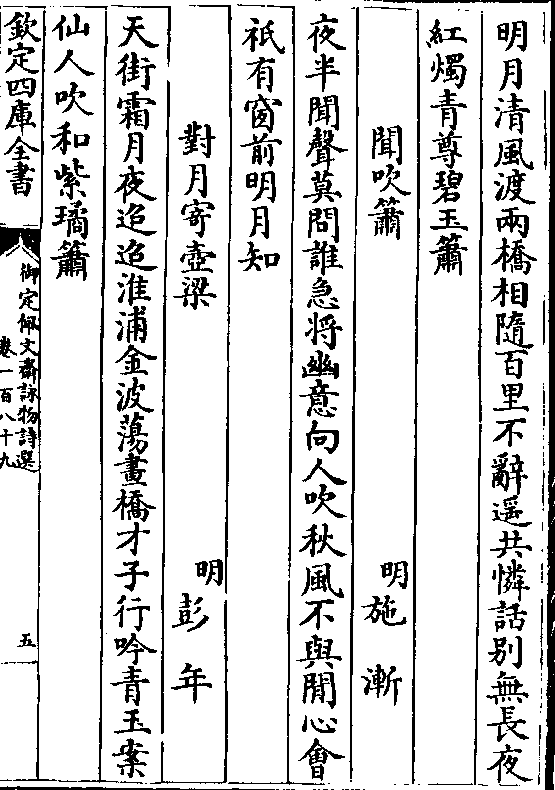 明月清風渡兩橋相隨百里不辭遥共憐話别無長夜
紅燭青尊碧玉簫
聞吹簫
明施漸
夜半聞聲莫問誰急将幽意向人吹秋風不與閒心會
祇有窗前明月知
對月寄壺梁
明彭年
天街霜月夜迢迢淮浦金波蕩畫橋才子行吟青玉案
仙人吹和紫璚簫
欽定四庫全書
御定佩文齋詠物詩選
卷一百八十九
五